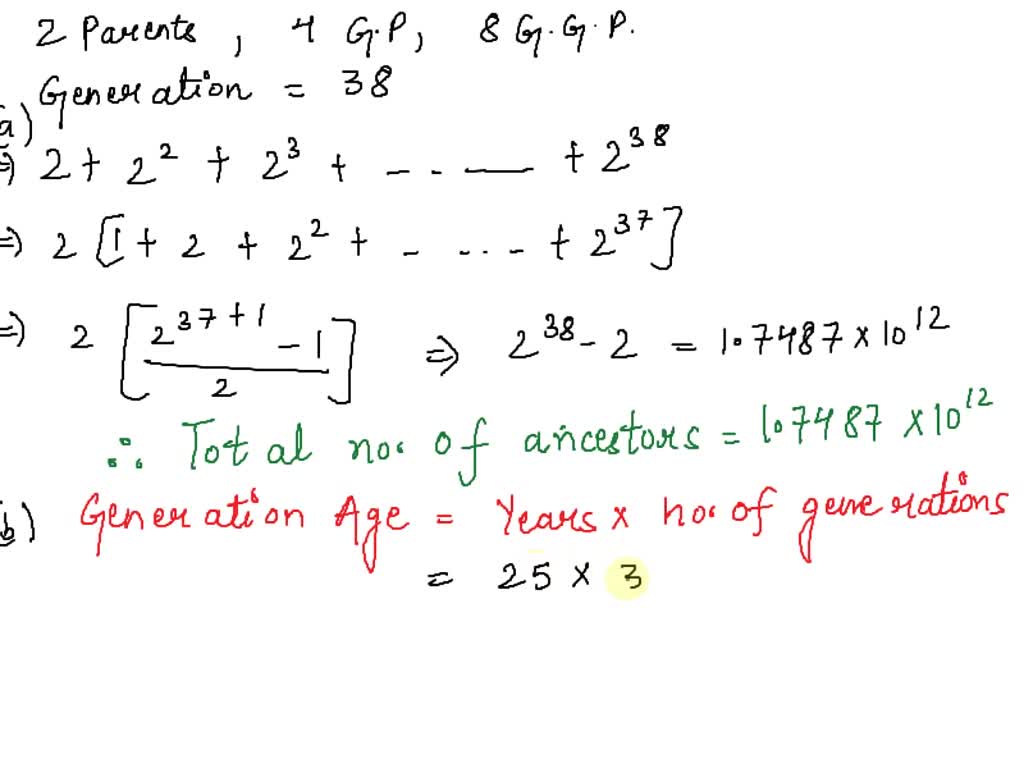 2 Parents, 4 G.P, 8 G.G.P.
Generation = 38
a)
⇒ 2 + 2² + 2³ + - - — + 2³⁸
⇒ 2 [1 + 2 + 2² + - - - - + 2³⁷]
⇒ 2 [(2³⁷⁺¹ - 1)/2] ⇒ 2³⁸ - 2 = 1.7487 × 10¹²
∴ Total no. of ancestors = 1.7487 × 10¹²
b) Generation Age = Years × no. of generations
= 25 × 3